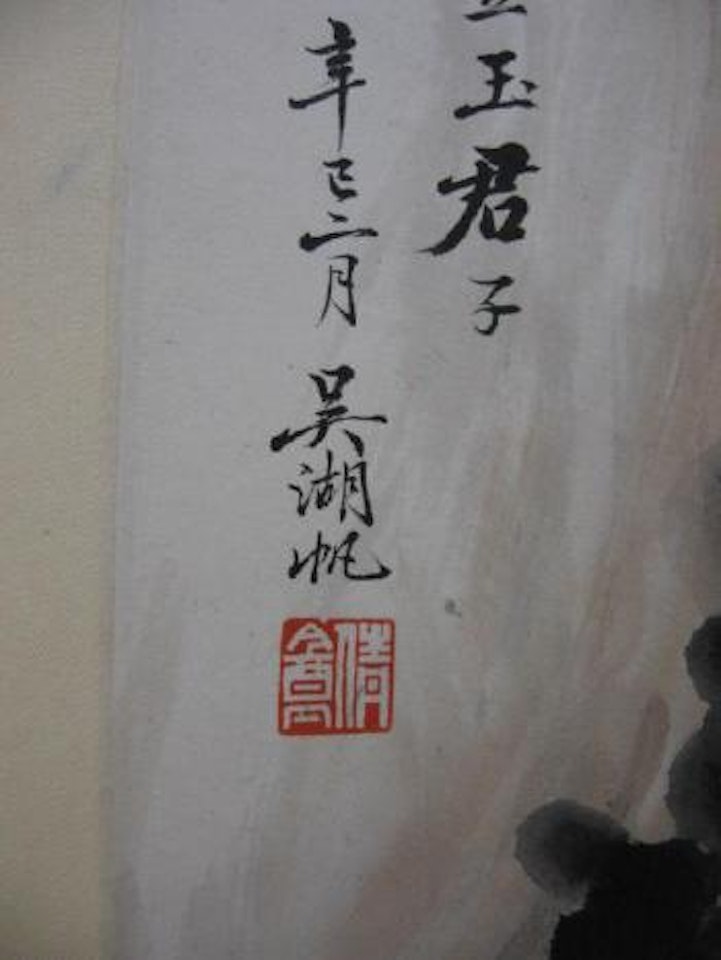 玉君子
辛巳二月 吳湖帆
倩盦